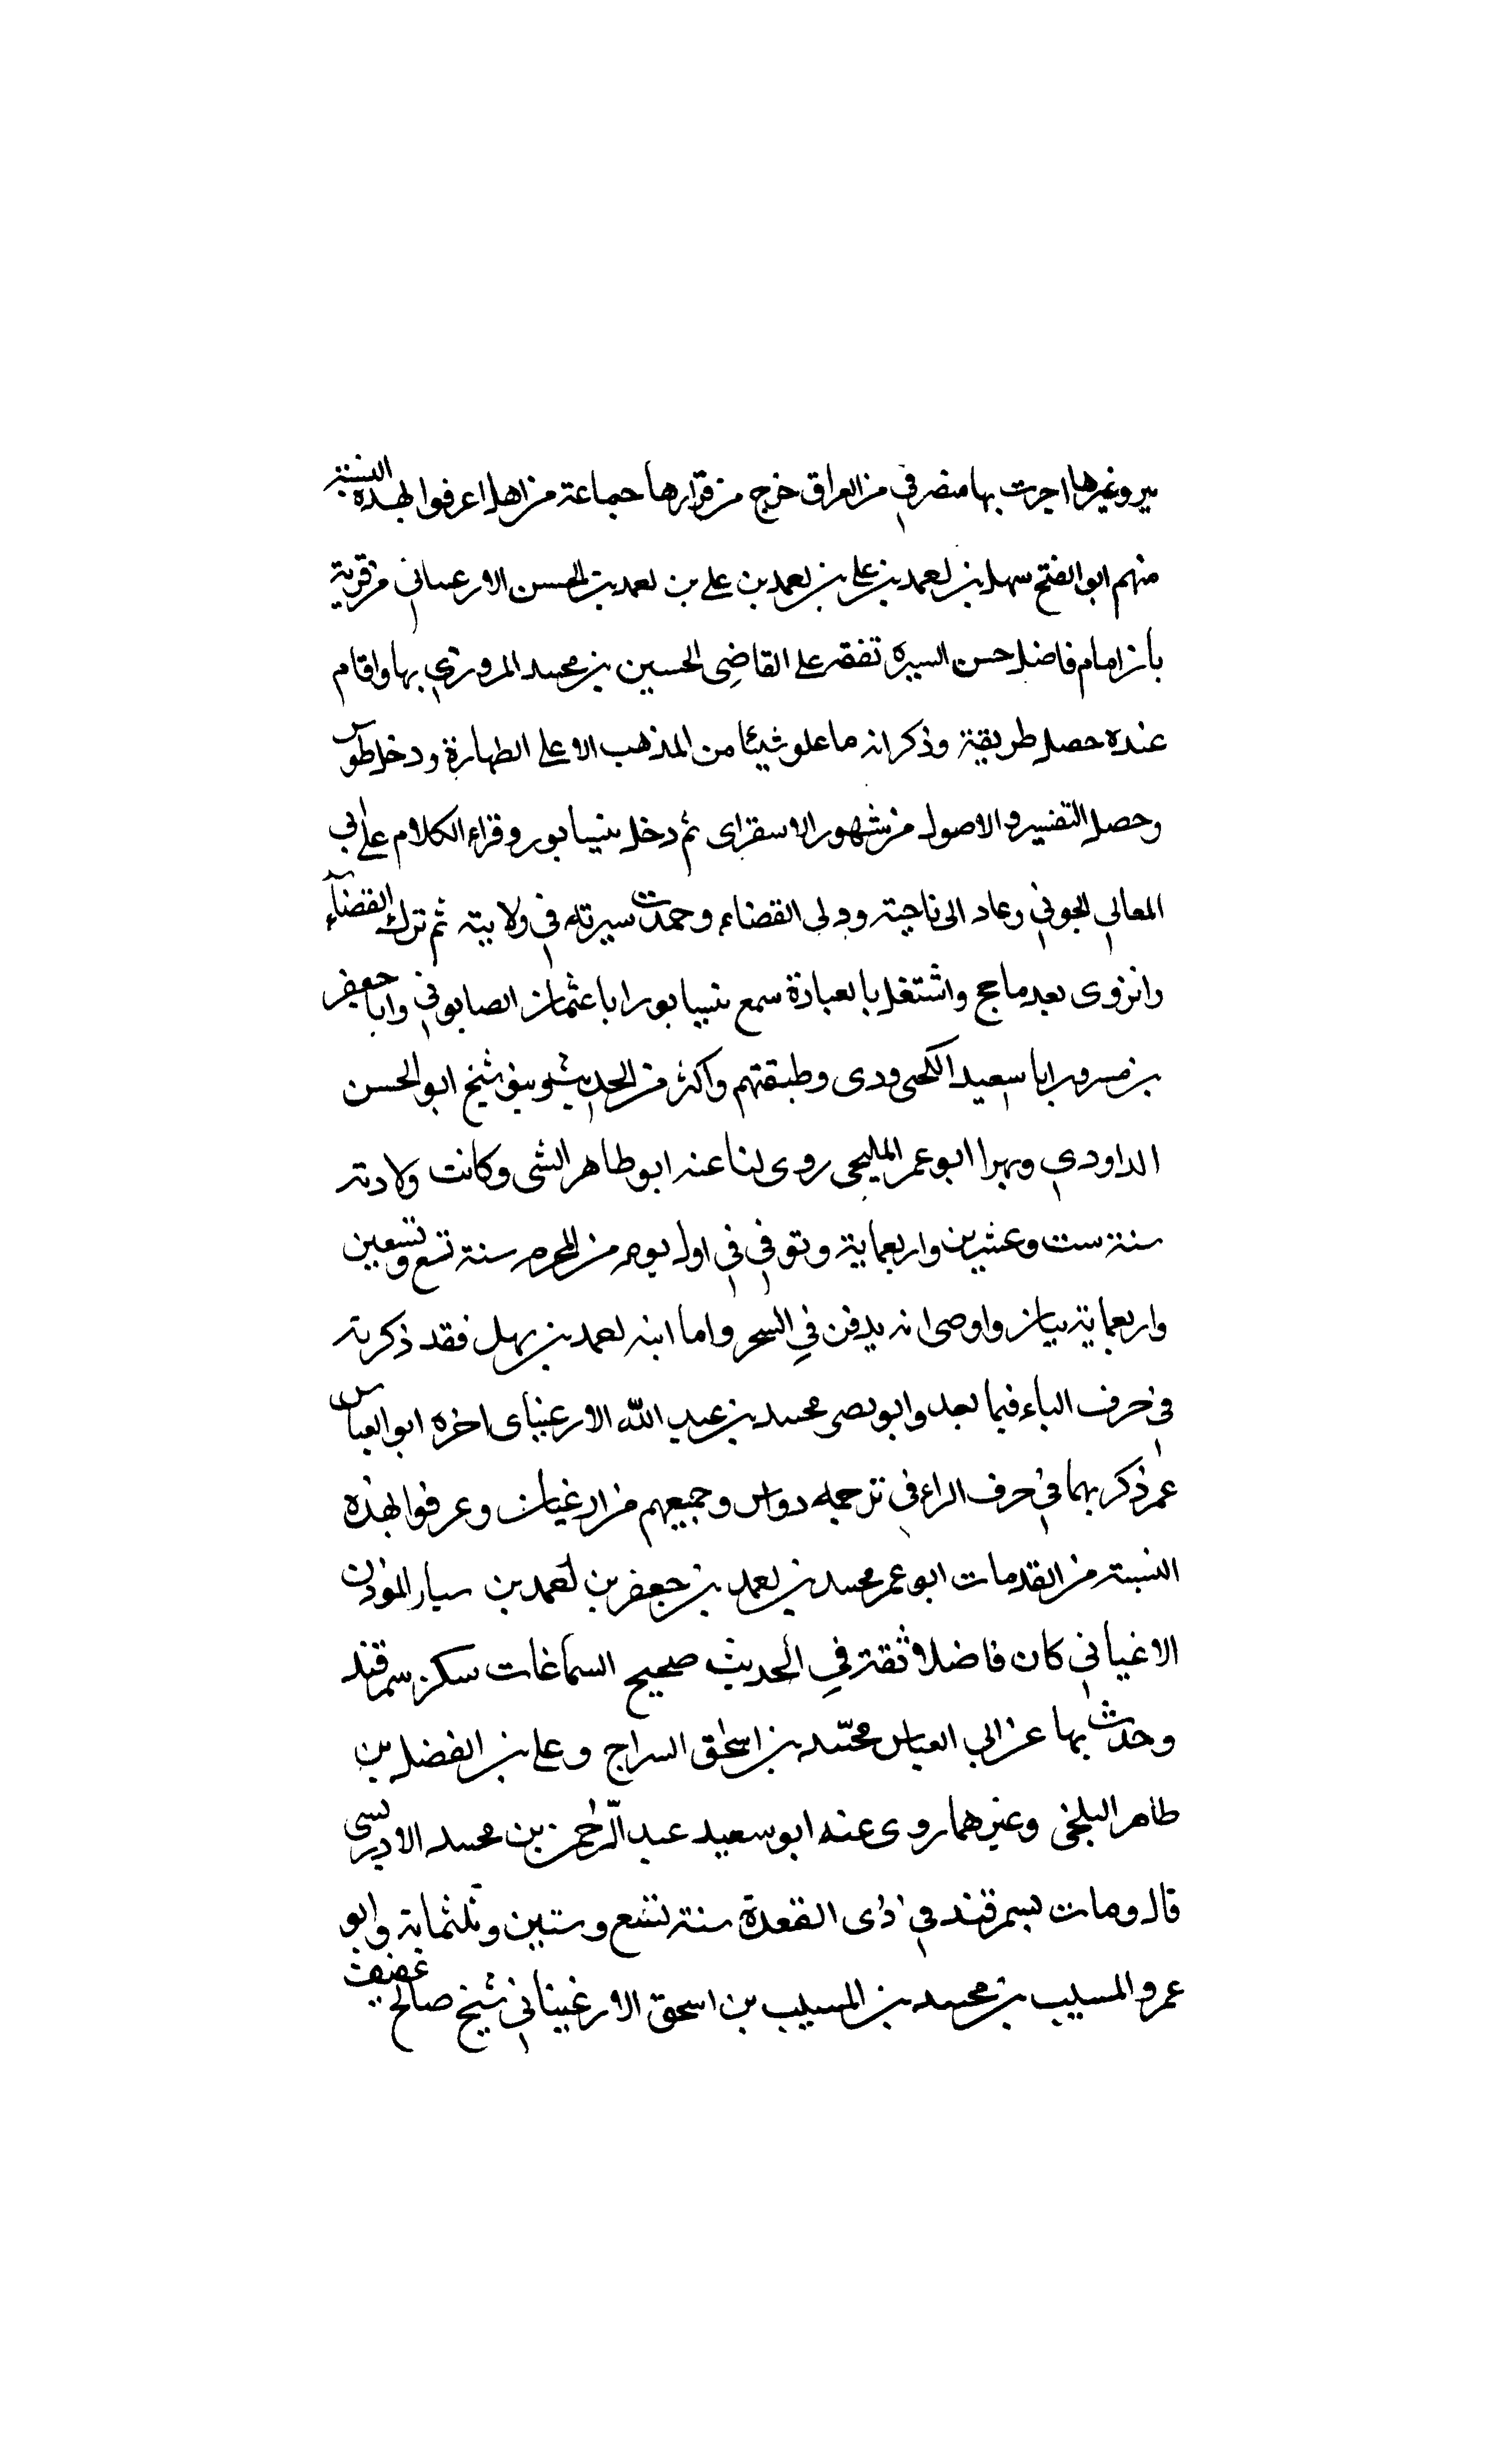 سر وغيرها اجرت بها منصرفي من العراق خرج من قرارها جماعة من اهلها عرفوا بهذه النسبة
منهم ابو الفتح سهل بن احمد بن علي بن احمد بن علي بن احمد بن الحسن الارعياني من قرية
بان امام فاضل حسن السيرة تفقه على القاضي الحسين بن محمد المروزي بها واقام
عنده حصل طريقة وذكر انه ما علو شيئا من المذهب الا على الطهارة ودخل طوس
وحصل التفسير والاصول من شهور الاسقراى ثم دخل نيسابور وقراء الكلام على ابي
المعالي الجوني وعاد الى ناحيته وولى القضاء وحمدت سيرته في ولايته ثم ترك القضاء
وانزوى بعد ما حج واشتغل بالعبادة سمع بنيسابور ابا عثمان الصابوني وابا جعفر
بن مسرور ابا سعيد الكحى ودى وطبقتهم واكثر من الحديث شيخ ابو الحسن
الداودي وبهرا ابو عمر المليحى روى لنا عنه ابو طاهر الشى وكانت ولادته
سنة ست وعشرين واربعماية وتوفي في اول يوم من المحرم سنة تسع وتسعين
واربعماية ببان واوصى انه يدفن في السحر واما ابنه احمد بن سهل فقد ذكرته
في حرف الباء فيما بعد وابو نصر محمد بن عبد الله الارغيناى اخره ابو العباس
عمر ذكر بهما في حرف الراء في ترجمه دواس وجميعهم من ارغيان وعرفوا بهذه
النسبة من القدمات ابو عمر محمد بن احمد بن جعفر بن احمد بن سيار الموذن
الاغياني كان فاضلا ثقة في الحديث صحيح السماغات سكن سمرقند
وحدث بها عن ابي العباس محمد بن اسحاق السراج وعلي بن الفضل بن
طاهر البلخى وغيرهما روى عنه ابو سعيد عبد الرحمن بن محمد الادريسى
قال ومات بسمرقند في ذى القعدة سنة تسع وستين وثلثماية وابو
عمرو المسيب بن محمد بن المسيب بن اسحق الارغيناني شيخ صالح عفيف